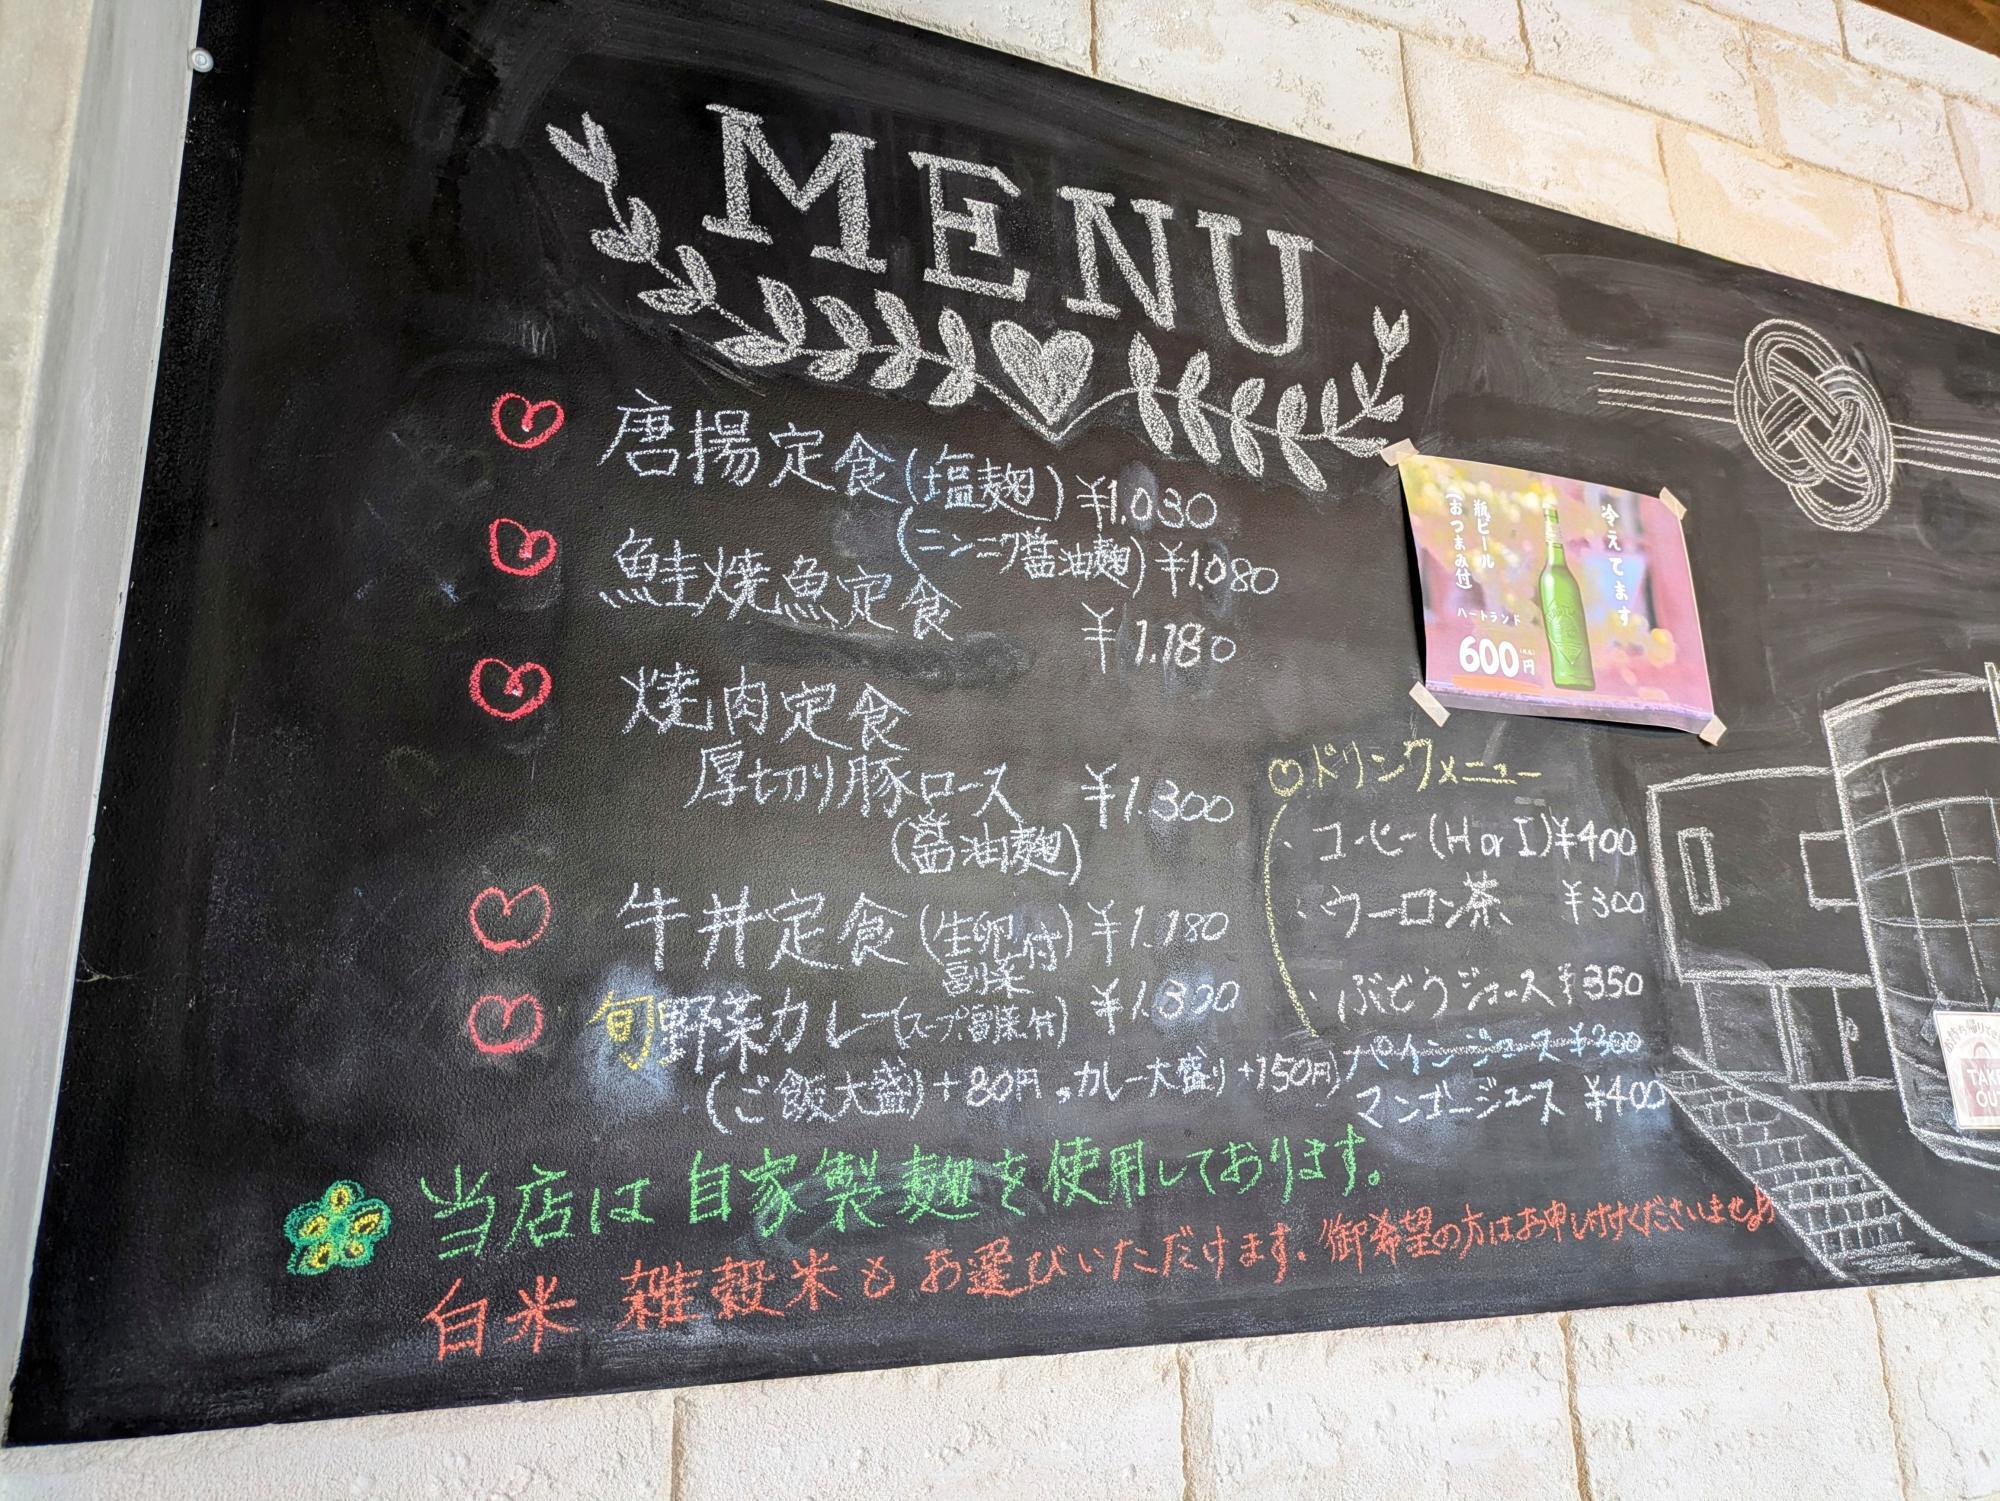 MENU
唐揚定食(塩麹) ¥1.030
(ニンニク醤油麹) ¥1.080
鮭焼魚定食 ¥1.180
焼肉定食
厚切り豚ロース ¥1.300
(醤油麹)
牛丼定食(生卵付) ¥1.180
副菜
旬野菜カレー(スープ副菜付) ¥1.300
(ご飯大盛)+80円,カレー大盛り+150円)
当店は自家製麹を使用しております。
白米 雑穀米もお選びいただけます. 御希望の方はお申し付けくださいませ
冷えてます
瓶ビール
(おつまみ付)
ハートランド
600円
ドリンクメニュー
・コーヒー(H or I)¥400
・ウーロン茶 ¥300
・ぶどうジュース ¥350
パインジュース ¥300
マンゴージュース ¥400
お持ち帰りでき
TAKE
OUT